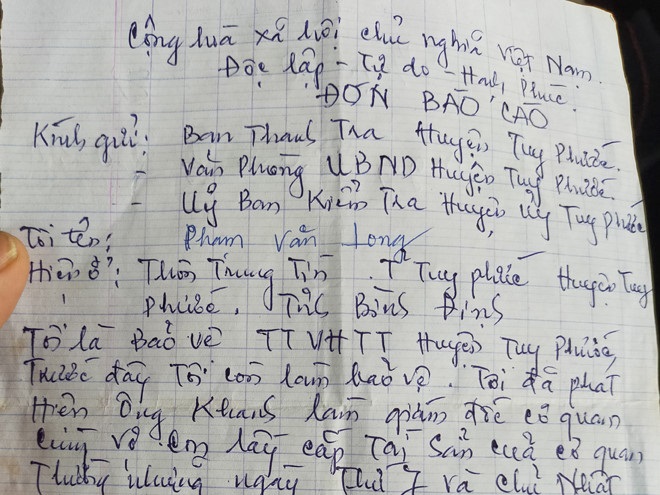 Cộng hòa xã hội chủ nghĩa Việt Nam.
Độc lập - Tự do - Hạnh Phúc.
ĐƠN BÁO CÁO
Kính gửi: Ban Thanh Tra Huyện Tuy Phước.
- Văn Phòng UBND Huyện Tuy Phước.
- Uỷ Ban Kiểm Tra Huyện Uỷ Tuy Phước
Tôi tên: Phạm Văn Long
Hiện ở: Thôn Trung Tín. TT Tuy phước Huyện Tuy
Phước. Tỉnh Bình Định
Tôi là Bảo vệ TTVHTT Huyện Tuy Phước,
Trước đây Tôi còn làm bảo vệ. Tôi đã phát
Hiện Ông Khanh làm giám đốc cơ quan
cùng vợ con lấy cắp Tài sản của cơ quan
Thường những ngày Thứ 7 và chủ Nhật